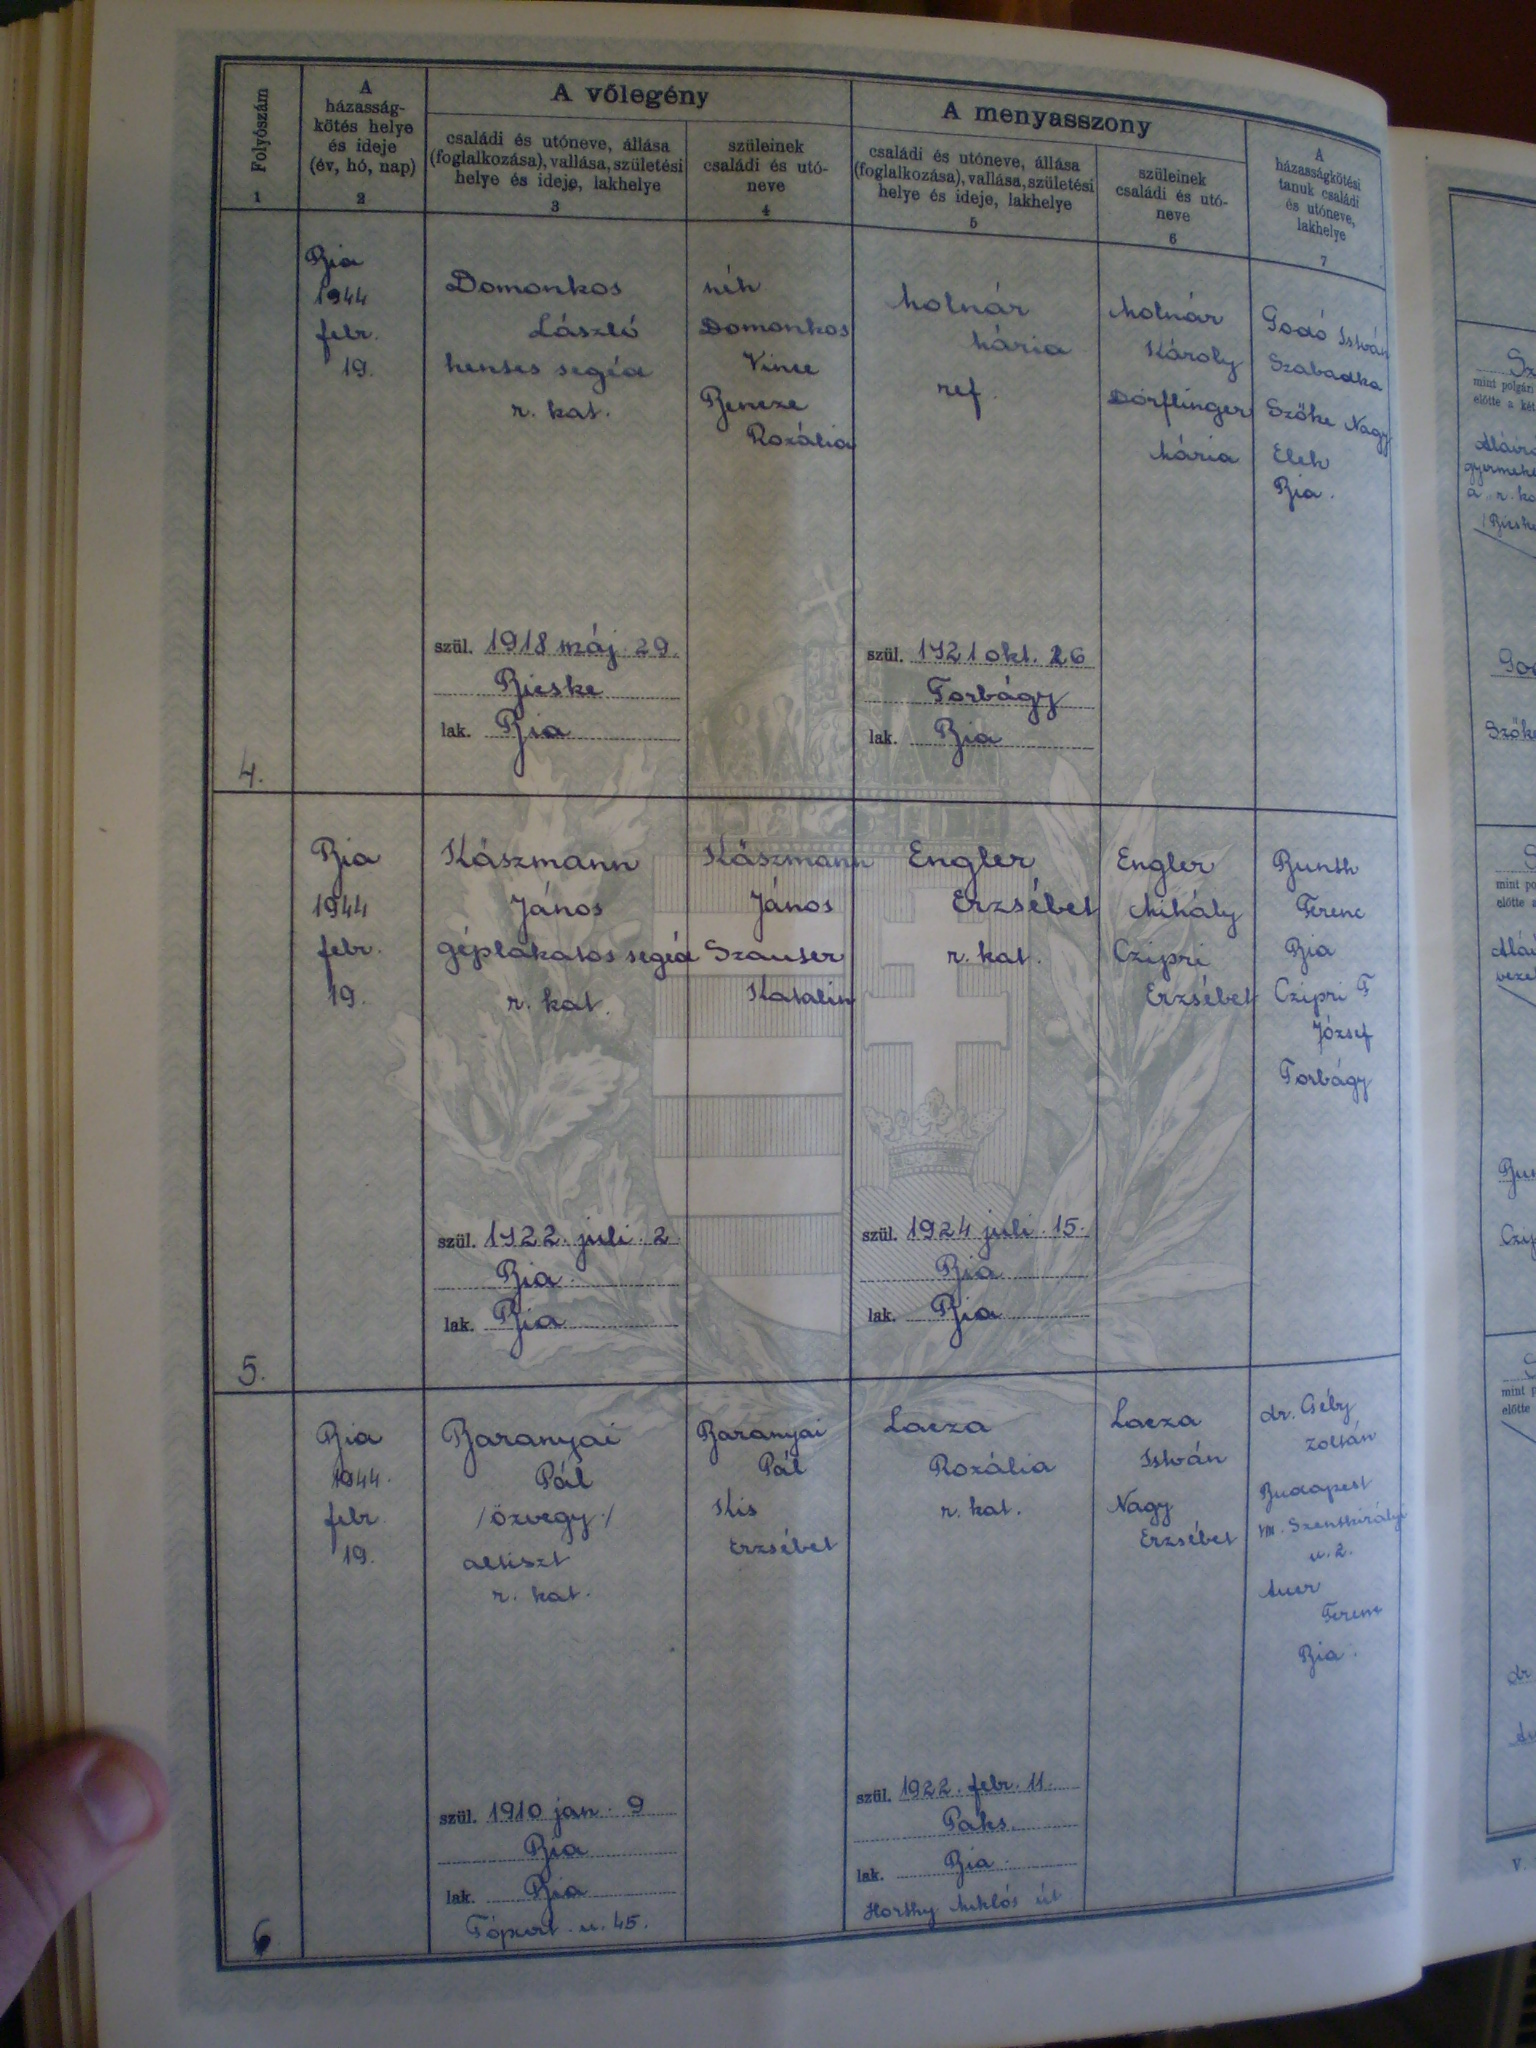 Folyószám
1
A
házasság-
kötés helye
és ideje
(év, hó, nap)
2
A vőlegény
családi és utóneve, állása
(foglalkozása), vallása, születési
helye és ideje, lakhelye
3
szüleinek
családi és utó-
neve
4
A menyasszony
családi és utóneve, állása
(foglalkozása), vallása, születési
helye és ideje, lakhelye
5
szüleinek
családi és utó-
neve
6
A
házasságkötési
tanuk családi
és utóneve,
lakhelye
7
4.
Bia
1944
febr.
19.
Domonkos
László
hentes segéd
r. kat.
szül. 1918 máj. 29.
Bicske
lak. Bia
néh
Domonkos
Vince
Bencze
Rozália
Molnár
Mária
ref.
szül. 1921 okt. 26
Torbágy
lak. Bia
Molnár
Károly
Dörflinger
Mária
Godó István
Szabadka
Szőke Nagy
Elek
Bia.
5.
Bia
1944
febr.
19.
Kászmann
János
géplakatos segéd
r. kat.
szül. 1922. juli. 2
Bia
lak. Bia
Kászmann
János
Szauter
Katalin
Engler
Erzsébet
r. kat.
szül. 1924 juli. 15.
Bia
lak. Bia
Engler
Mihály
Czipri
Erzsébet
Bunth
Ferenc
Bia
Czipri F
József
Torbágy
6
Bia
1944.
febr
19.
Baranyai
Pál
/özvegy/
altiszt
r. kat.
szül. 1910 jan. 9
Bia
lak. Bia
u. 45.
Baranyai
Pál
Kis
Erzsébet
Lacza
Rozália
r. kat.
szül. 1922. febr. 11.
Paks.
lak. Bia
Horthy Miklós út
Lacza
István
Nagy
Erzsébet
dr.
Zoltán
Budapest
VIII. Szentkirályi
u. 2.
Auer
Ferenc
Bia.